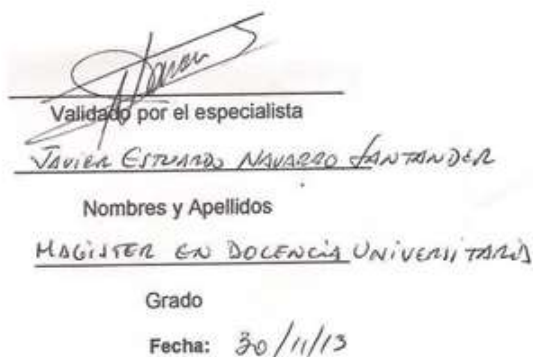 Validado por el especialista
JAVIER ESTUARDO NAVARRO SANTANDER
Nombres y Apellidos
MAGISTER EN DOCENCIA UNIVERSITARIA
Grado
Fecha: 30/11/13